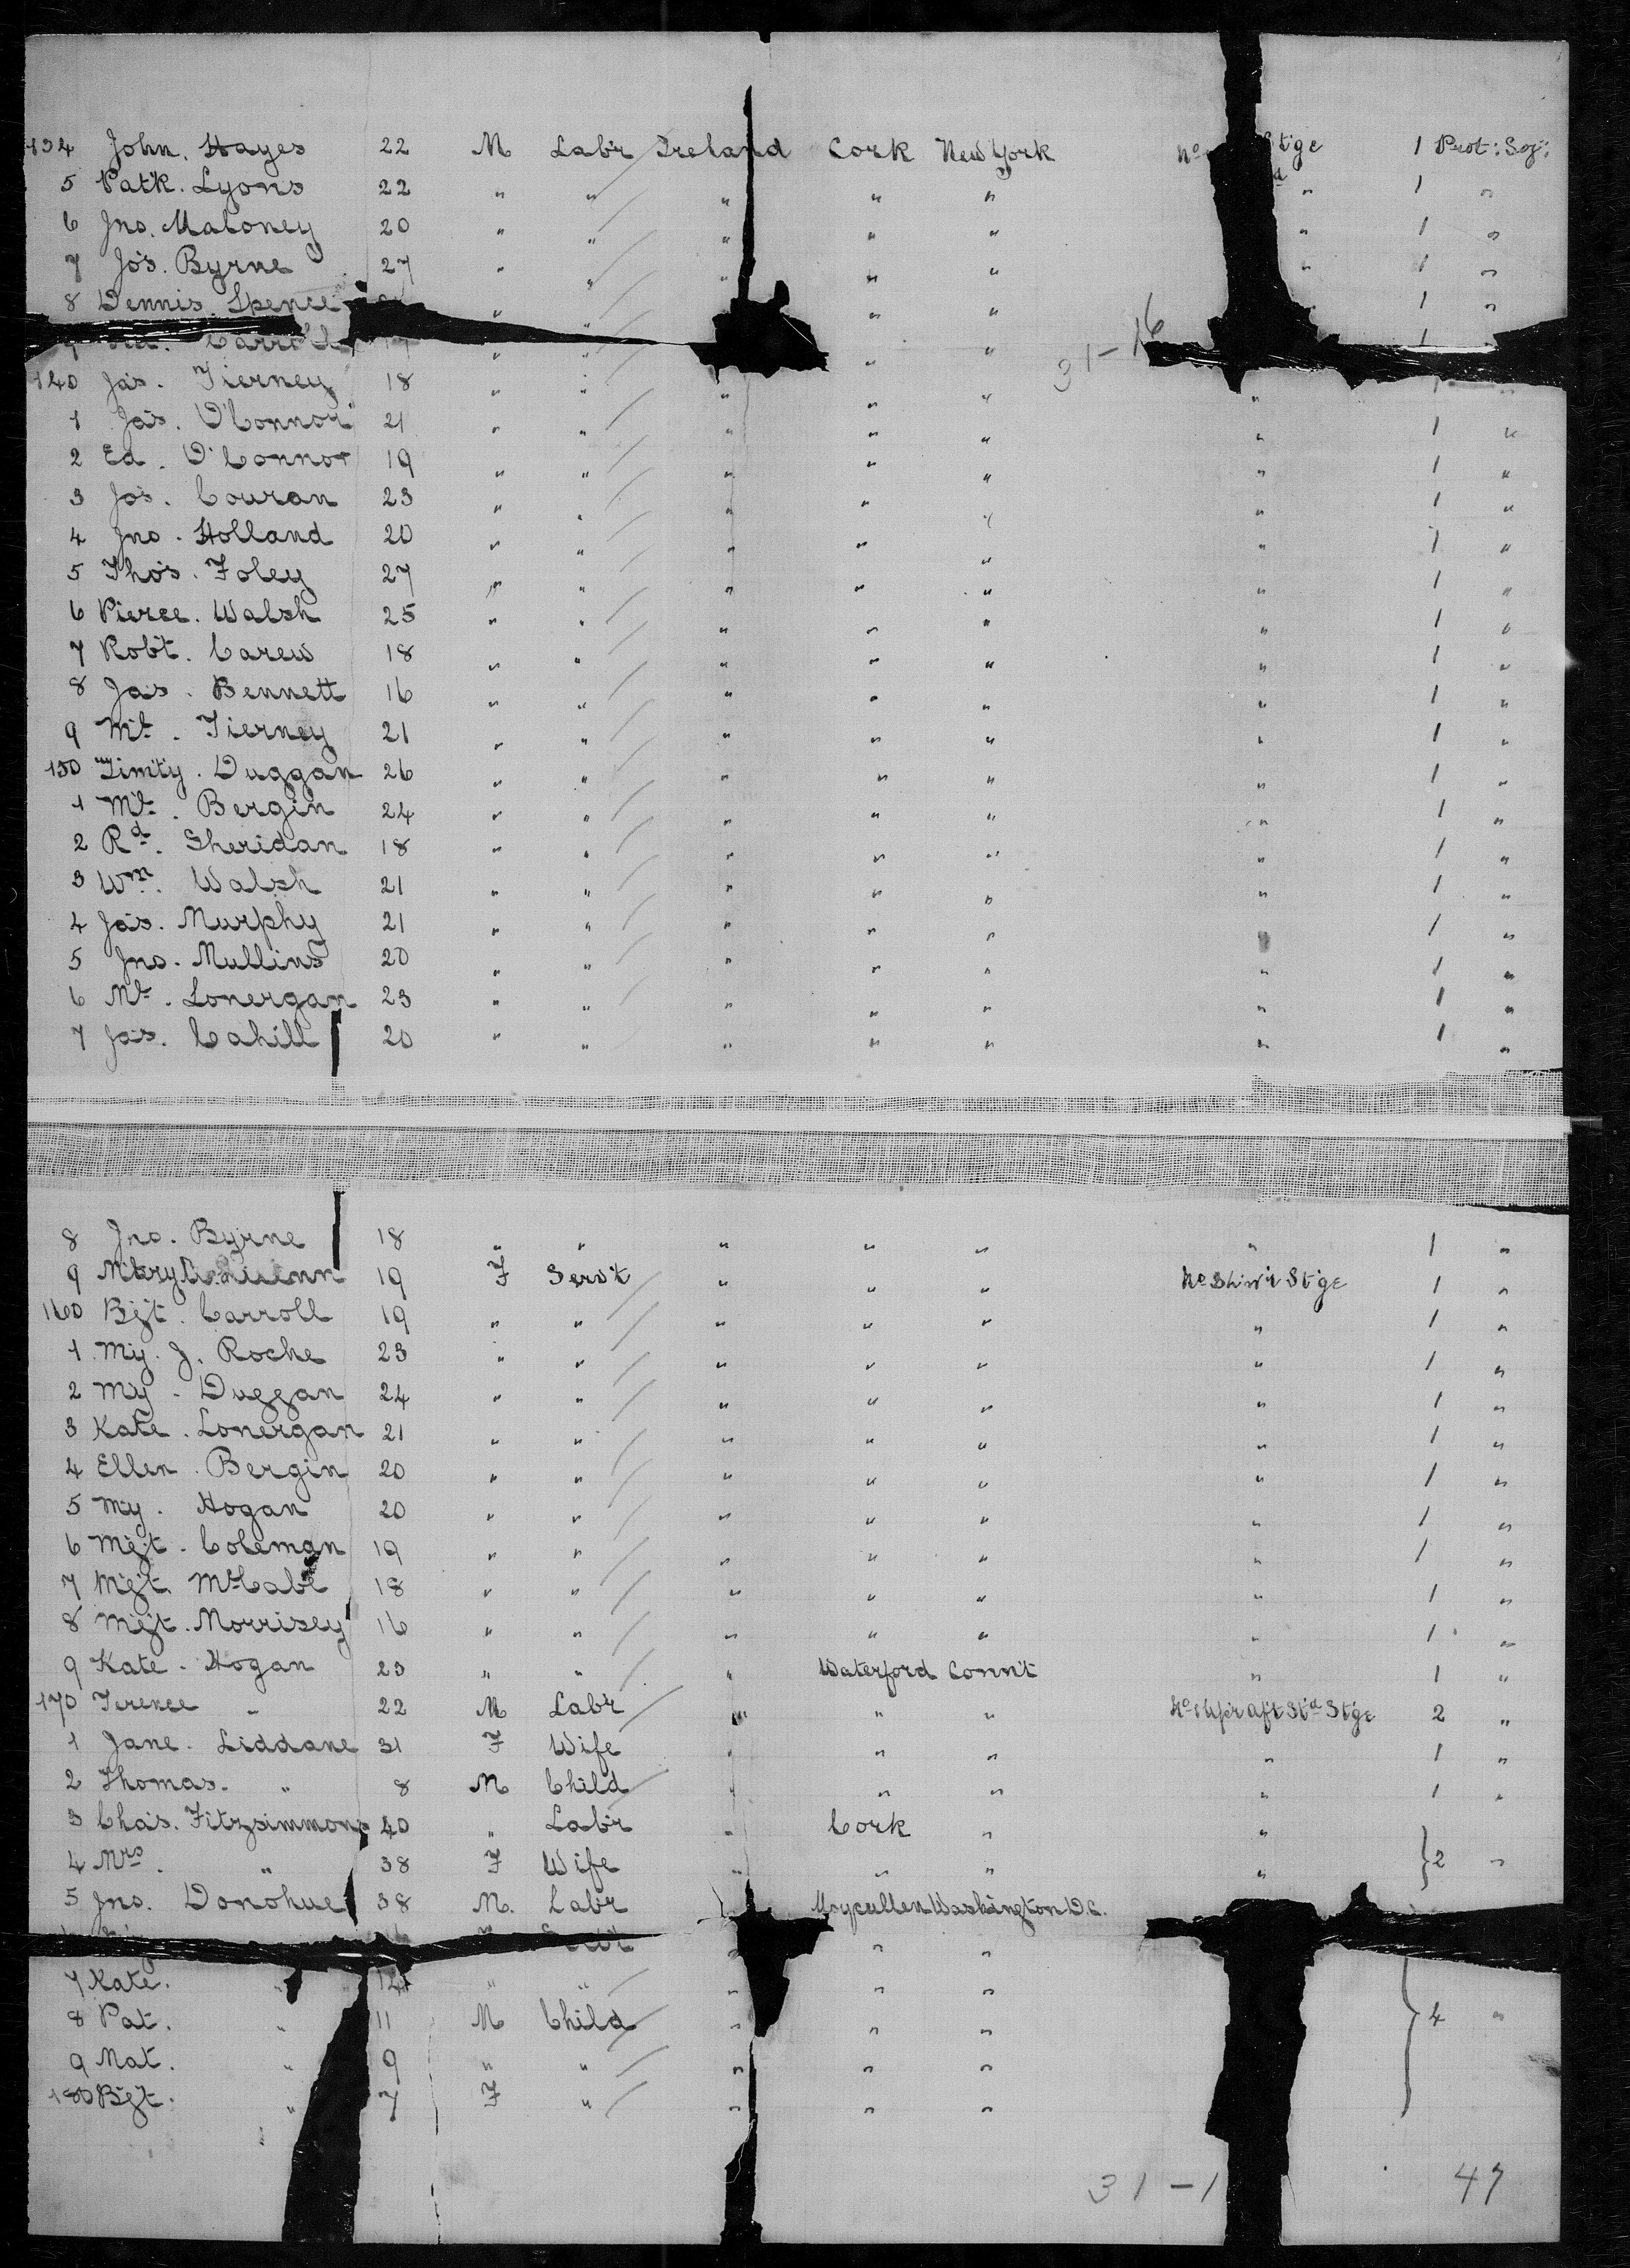 134 John. Hayes 22 M Lab'r Ireland Cork New York No St'ge 1 Prot: Soj:
5 Pat'k. Lyons 22 " " " " " " 1 "
6 Jno. Maloney 20 " " " " " " 1 "
7 Jos. Byrne 27 " " " " " " 1 "
8 Dennis. Spence " " " " " 1 "
9 Carroll " " " " 1
31-16
140 Jas. Tierney 18 " " " " " " 1 "
1 Jas. O'Connor 21 " " " " " " 1 "
2 Ed. O'Connor 19 " " " " " " 1 "
3 Jos. Couran 23 " " " " " " 1 "
4 Jno. Holland 20 " " " " " " 1 "
5 Thos. Foley 27 " " " " " " 1 "
6 Pierce. Walsh 25 " " " " " " 1 "
7 Rob't. Carew 18 " " " " " " 1 "
8 Jas. Bennett 16 " " " " " " 1 "
9 Ml. Tierney 21 " " " " " " 1 "
150 Timt'y. Duggan 26 " " " " " " 1 "
1 Ml. Bergin 24 " " " " " " 1 "
2 Rd. Sheridan 18 " " " " " " 1 "
3 Wm. Walsh 21 " " " " " " 1 "
4 Jas. Murphy 21 " " " " " 1 "
5 Jno. Mullins 20 " " " " " " 1 "
6 Ml. Lonergan 23 " " " " " " 1 "
7 Jas. Cahill 20 " " " " " " 1 "
8 Jno. Byrne 18 " " " " " " 1 "
9 Mary 19 F Serv't " " " No St'ge 1 "
160 Bgt. Carroll 19 " " " " " " 1 "
1 My. J. Roche 23 " " " " " " 1 "
2 My. Duggan 24 " " " " " " 1 "
3 Kate. Lonergan 21 " " " " " " 1 "
4 Ellen. Bergin 20 " " " " " " 1 "
5 My. Hogan 20 " " " " " " 1 "
6 Mgt. Coleman 19 " " " " " " 1 "
7 Mgt. McCabe 18 " " " " " " 1 "
8 Mgt. Morrisey 16 " " " " " " 1 "
9 Kate. Hogan 23 " " " Waterford Conn't " 1 "
170 Terence " 22 M Lab'r " " " No Upr aft St'd St'ge 2 "
1 Jane. Liddane 31 F Wife " " " " 1 "
2 Thomas. " 8 M Child " " " " 1 "
3 Chas. Fitzsimmons 40 " Lab'r " Cork " "
4 Mrs. " 38 F Wife " " " " } 2 "
5 Jno. Donohue 38 M. Lab'r Washington D.C.
" " "
7 Kate. " 14 " " " " "
8 Pat. " 11 M Child " " " } 4 "
9 Mat. " 9 " " " " "
180 Bgt. " 7 F " " " "
31-1 47